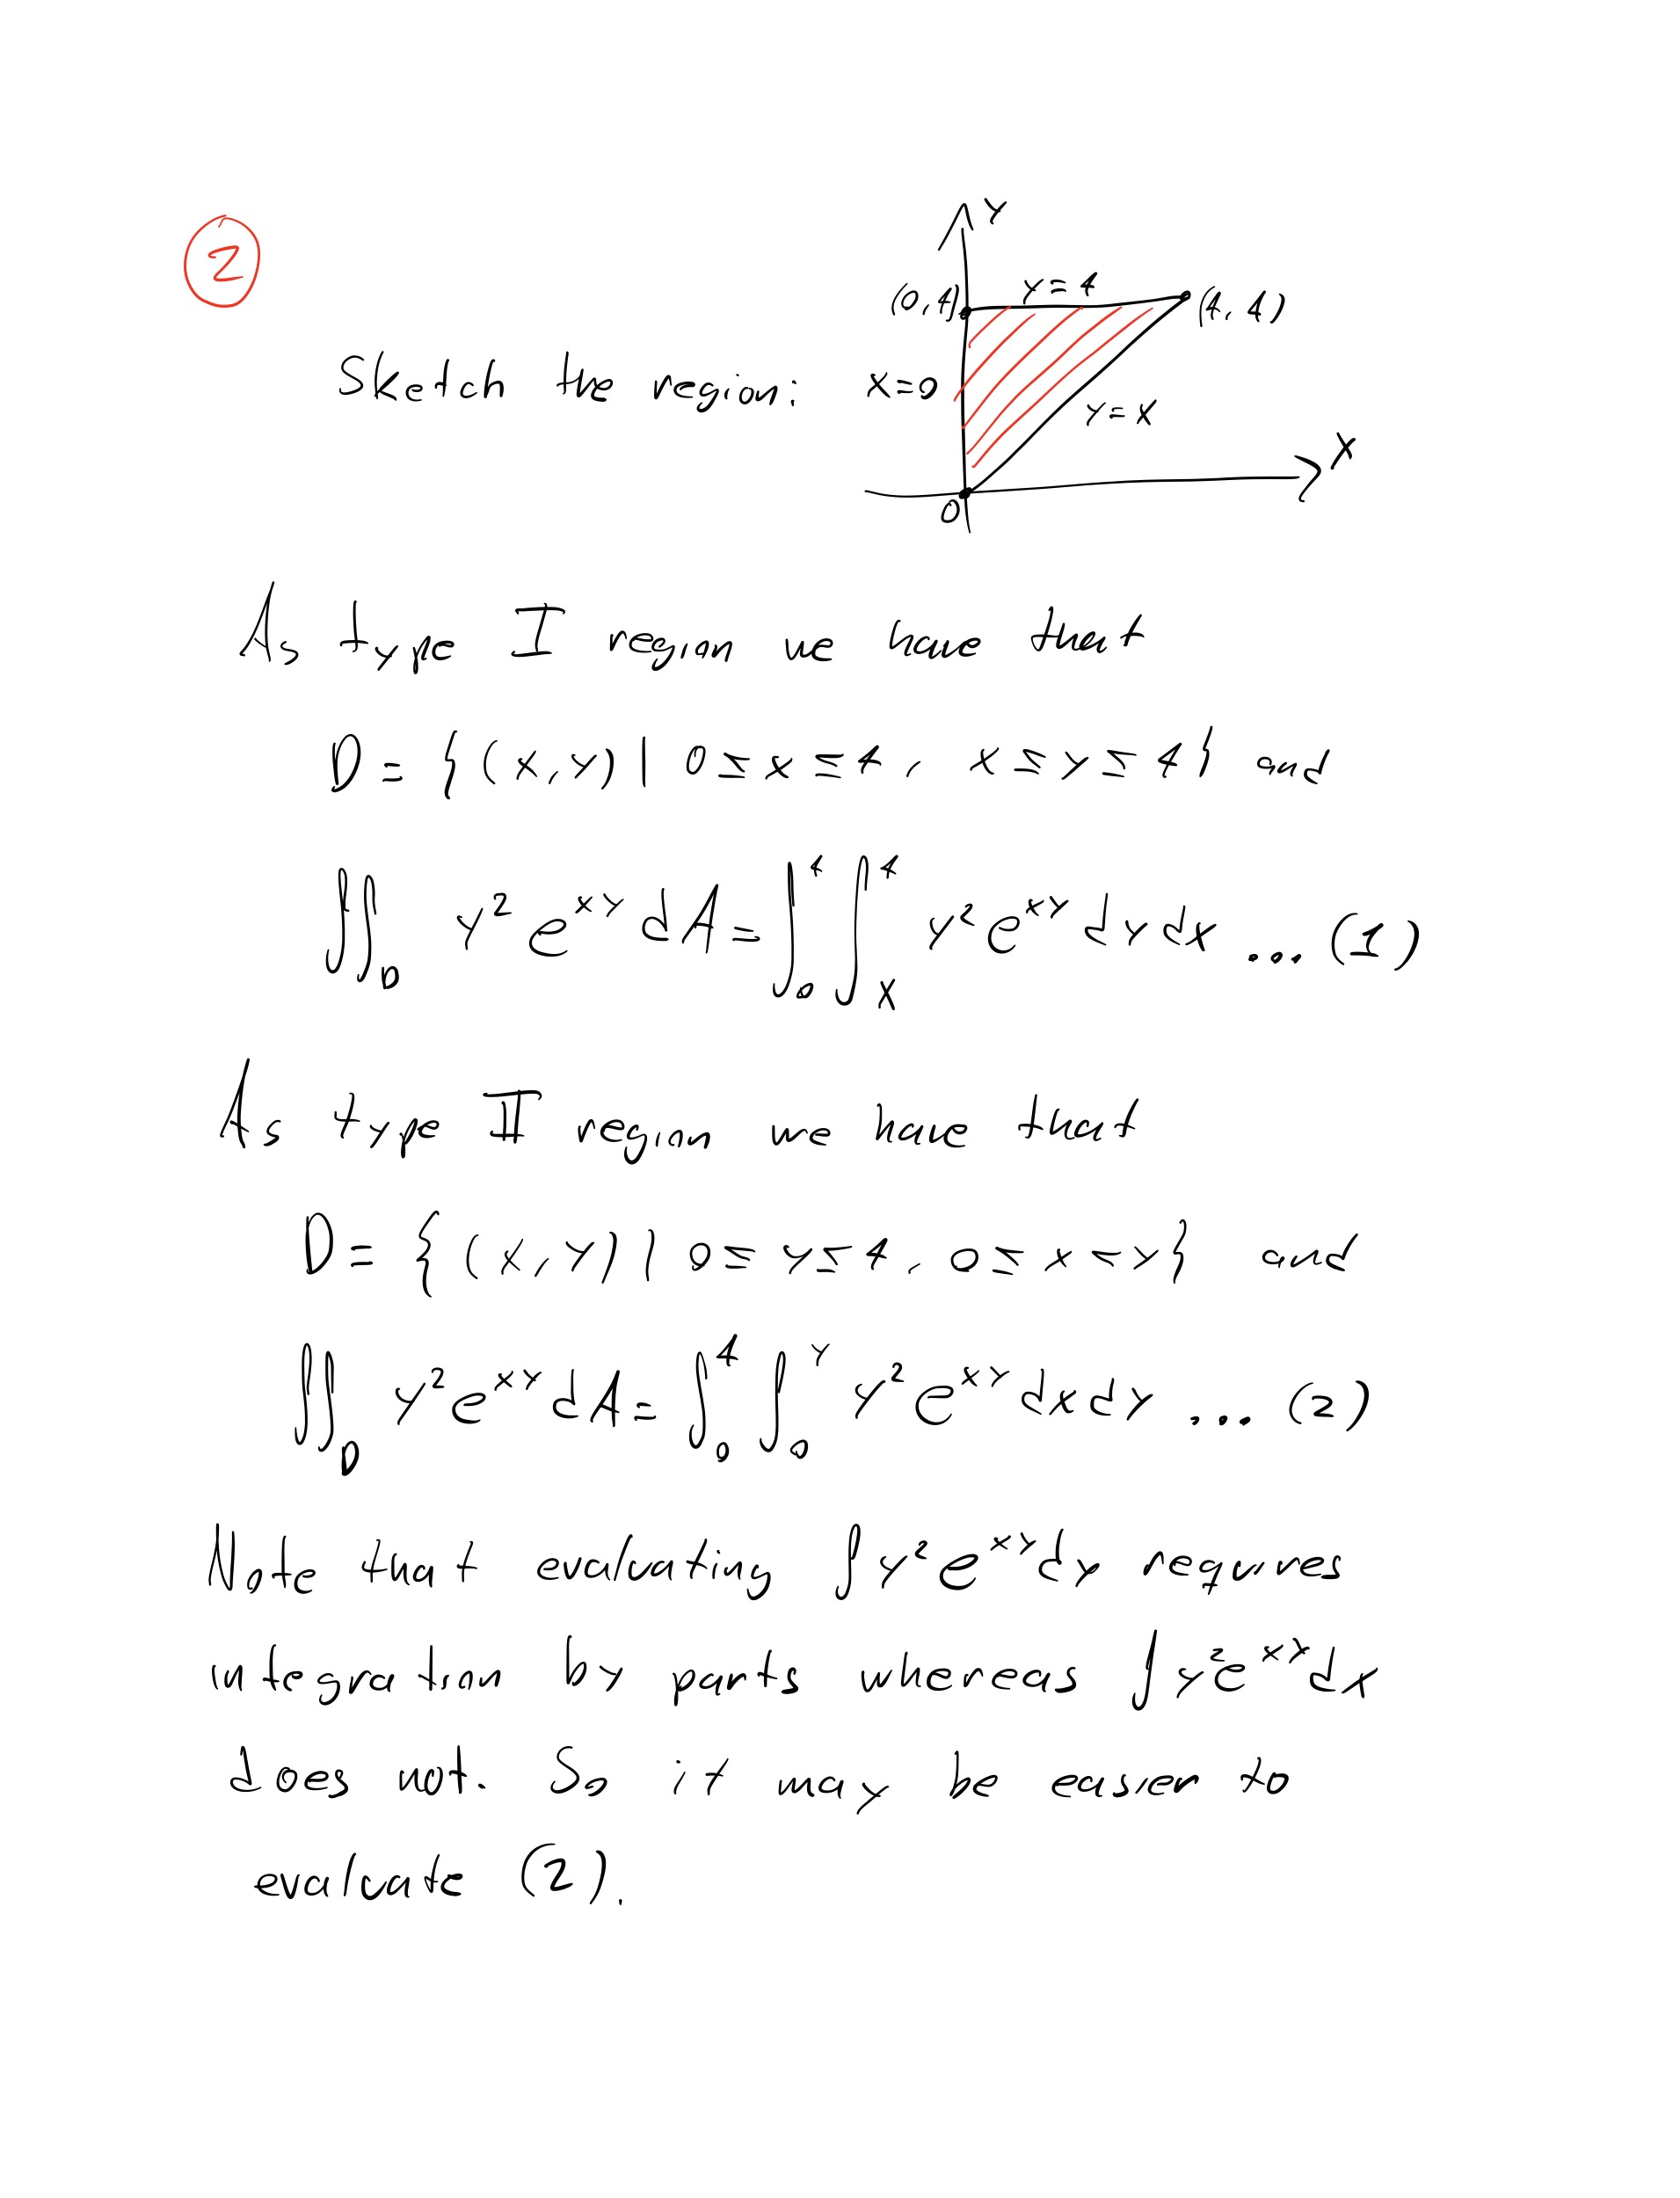 2
Y
(0,4) y=4 (4,4)
Sketch the region: x=0
y=x
X
0
As type I region we have that
D = {(x,y) | 0≤x≤4, x≤y≤4} and
∬_D y² e^{xy} dA = ∫_0^4 ∫_x^4 y² e^{xy} dy dx ... (1)
As type II region we have that
D = {(x,y) | 0≤y≤4, 0≤x<y} and
∬_D y² e^{xy} dA = ∫_0^4 ∫_0^y y² e^{xy} dx dy ... (2)
Note that evaluating ∫ y² e^{xy} dy requires
integration by parts whereas ∫ y² e^{xy} dx
does not. So it may be easier to
evaluate (2).